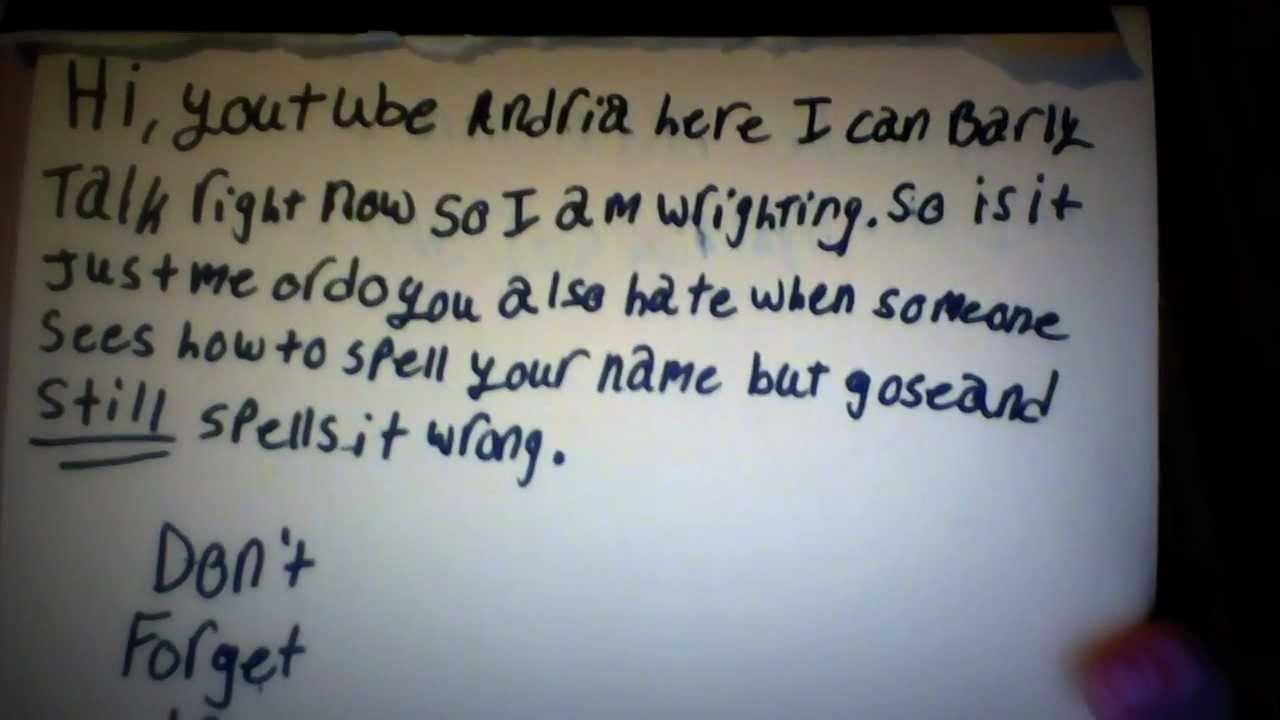 Hi, youtube Andria here I can Barly
Talk right now so I am wrighting. so is it
just me or do you also hate when someone
sees how to spell your name but gose and
still spells it wrong.
Don't
Forget